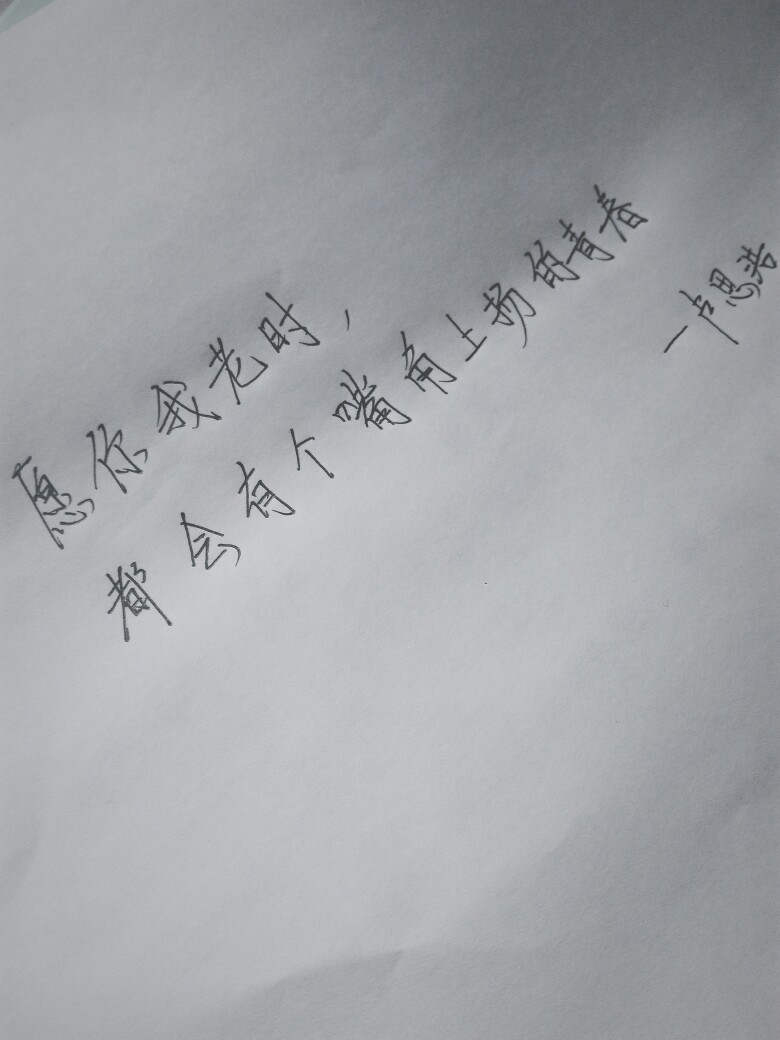 愿你我老时,
都会有个嘴角上扬的青春
—卢思浩